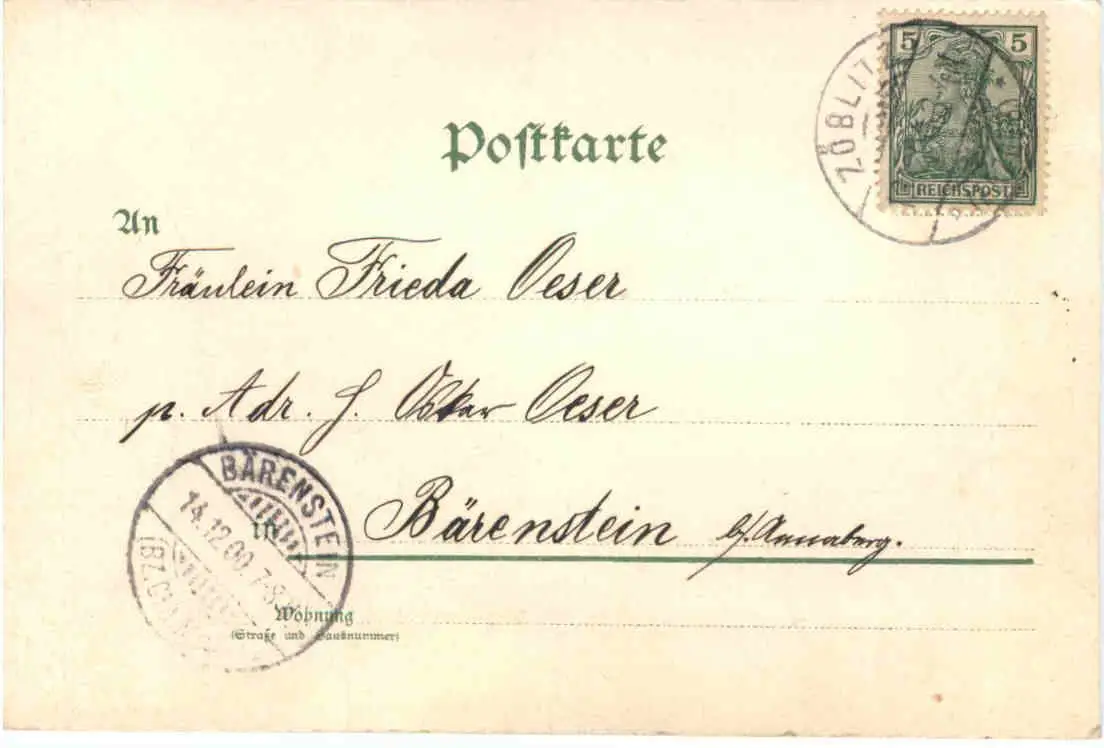 5 5
ZÖBLITZ
REICHSPOST
Postkarte
An
Fräulein Frieda Oeser
p. Adr. H. Oskar Oeser
BÄRENSTEIN
14.12.00. 7-8
(BZ.
in Bärenstein b/Annaberg.
Wohnung
(Straße und Hausnummer)